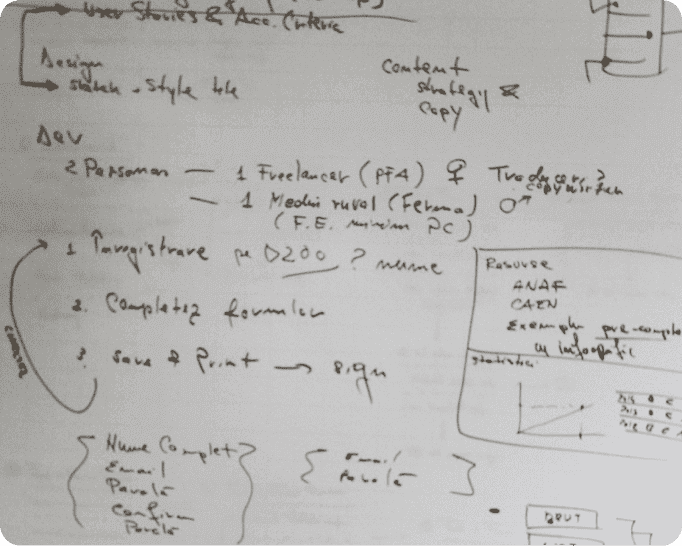 User Stories & Acc. Criteria
Design
sketch + style tile
Content
strategy &
copy
Dev
2 Persoman — 1 Freelancer (PFA) ♀ Traducer?
copywriter
— 1 Mediu rural (Ferma) ♂
(F.E. minim PC)
1 Înregistrare pe D200 ? nume
2. Completez formular
3. Save & Print → sign
Resurse
ANAF
CAEN
Exemple pre-comple
infografic
Statistici
Nume Complet
Email
Parolă
Confirm
Parolă
Email
Parolă